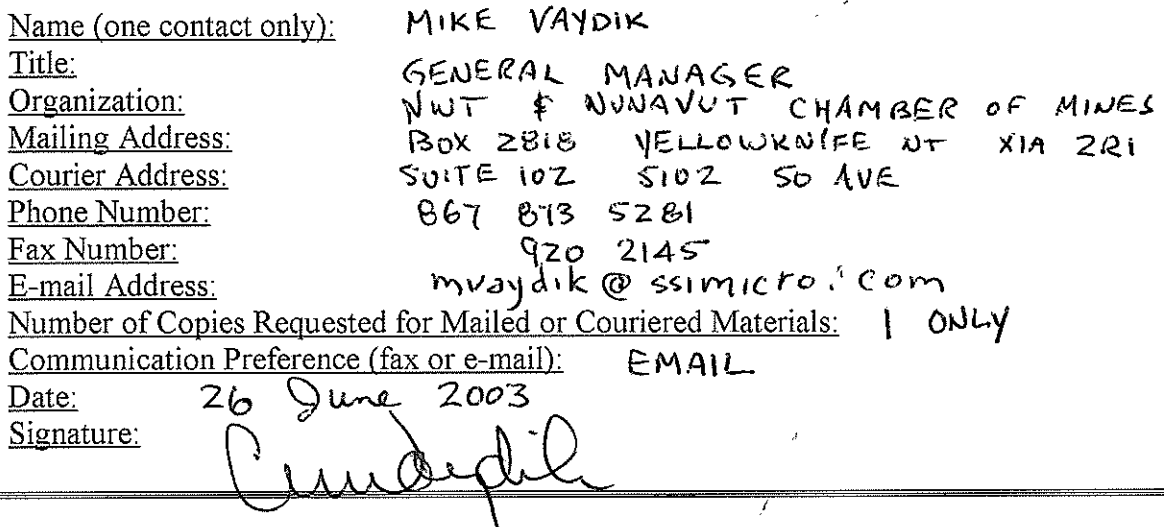 Name (one contact only): MIKE VAYDIK
Title: GENERAL MANAGER
Organization: NWT & NUNAVUT CHAMBER OF MINES
Mailing Address: BOX 2818 YELLOWKNIFE NT X1A 2R1
Courier Address: SUITE 102 5102 50 AVE
Phone Number: 867 873 5281
Fax Number: 920 2145
E-mail Address: mvaydik@ssimicro.com
Number of Copies Requested for Mailed or Couriered Materials: 1 ONLY
Communication Preference (fax or e-mail): EMAIL
Date: 26 June 2003
Signature: